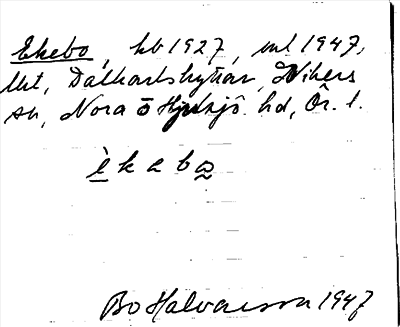 Ekebo, kb 1927, ml 1947,
lht, Dalkarlshyttan, Vikers
sn, Nora o Hjulsjö hd, Ör. l.
èkabo
Bo Halvarsson 1947